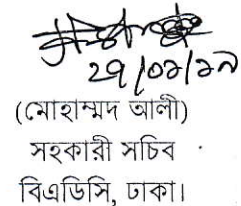 ২৭/০১/১৯
(মোহাম্মদ আলী)
সহকারী সচিব
বিএডিসি, ঢাকা।